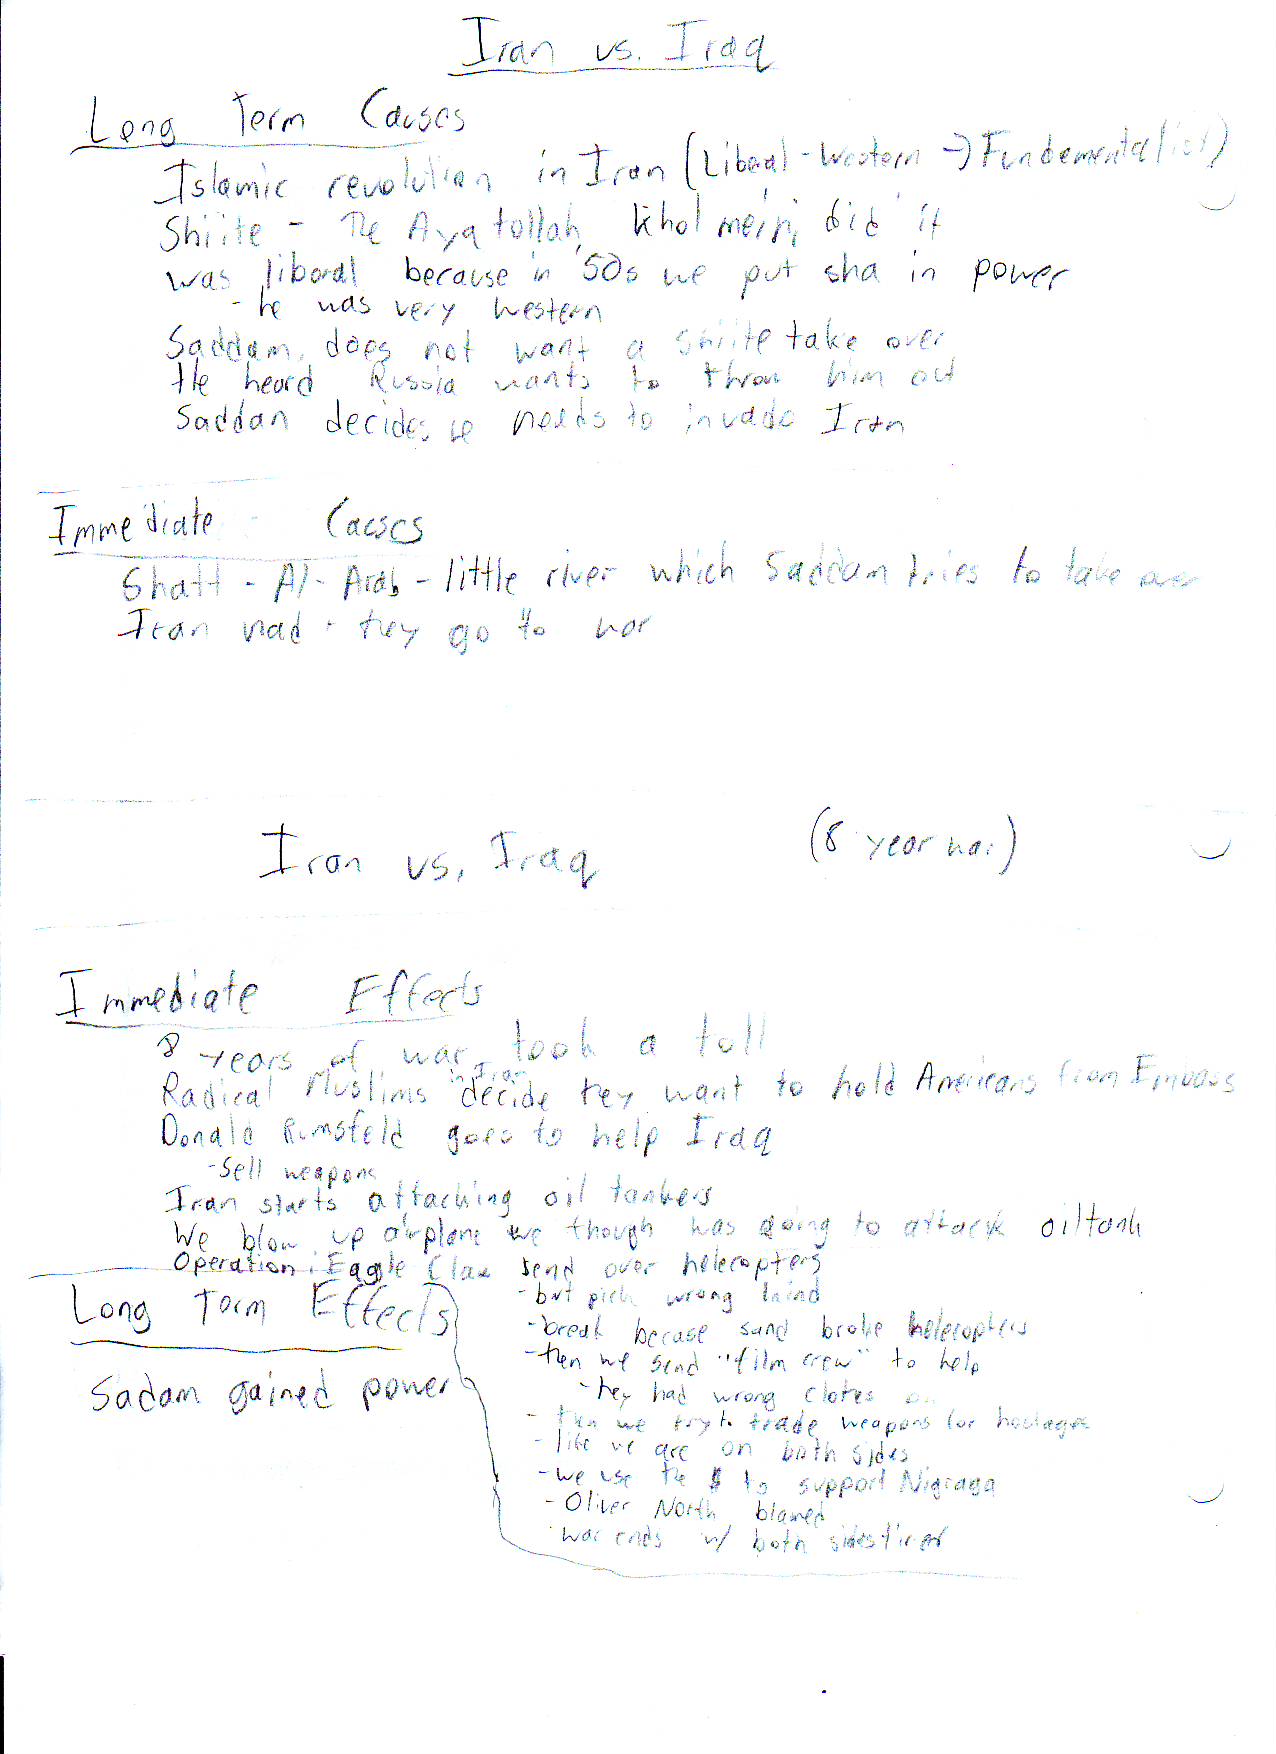 Iran vs. Iraq
Long Term Causes
Islamic revolution in Iran (Libeal-Western → Fundementalist)
Shiite - The Ayatollah Khol meini did it
was liberal because in '50s we put sha in power
- he was very Western
Saddam does not want a shiite take over
He heard Russia wants to throw him out
Saddan decides he needs to invade Iran
Immediate Causes
Shatt-Al-Arab - little river which Saddam tries to take over
Iran mad - they go to war
Iran vs. Iraq (8 year war)
Immediate Effects
8 years of war took a toll
Radical Muslims in Iran decide they want to hold Americans from
Donald Rumsfeld goes to help Iraq
- Sell weapons
Iran starts attacking oil tankers
We blow up airplane we though was going to attack oiltank
Operation: Eagle Claw send over helecopters
- but pick wrong kind
Long Term Effects
- break becase sand broke helecopters
- then we send "film crew" to help
Sadam gained power
- they had wrong clotes on
- then we try to trade weapons for hostages
- like we are on both sides
- we use the $ to support Nigraga
- Oliver North blamed
war ends w/ both sides tired